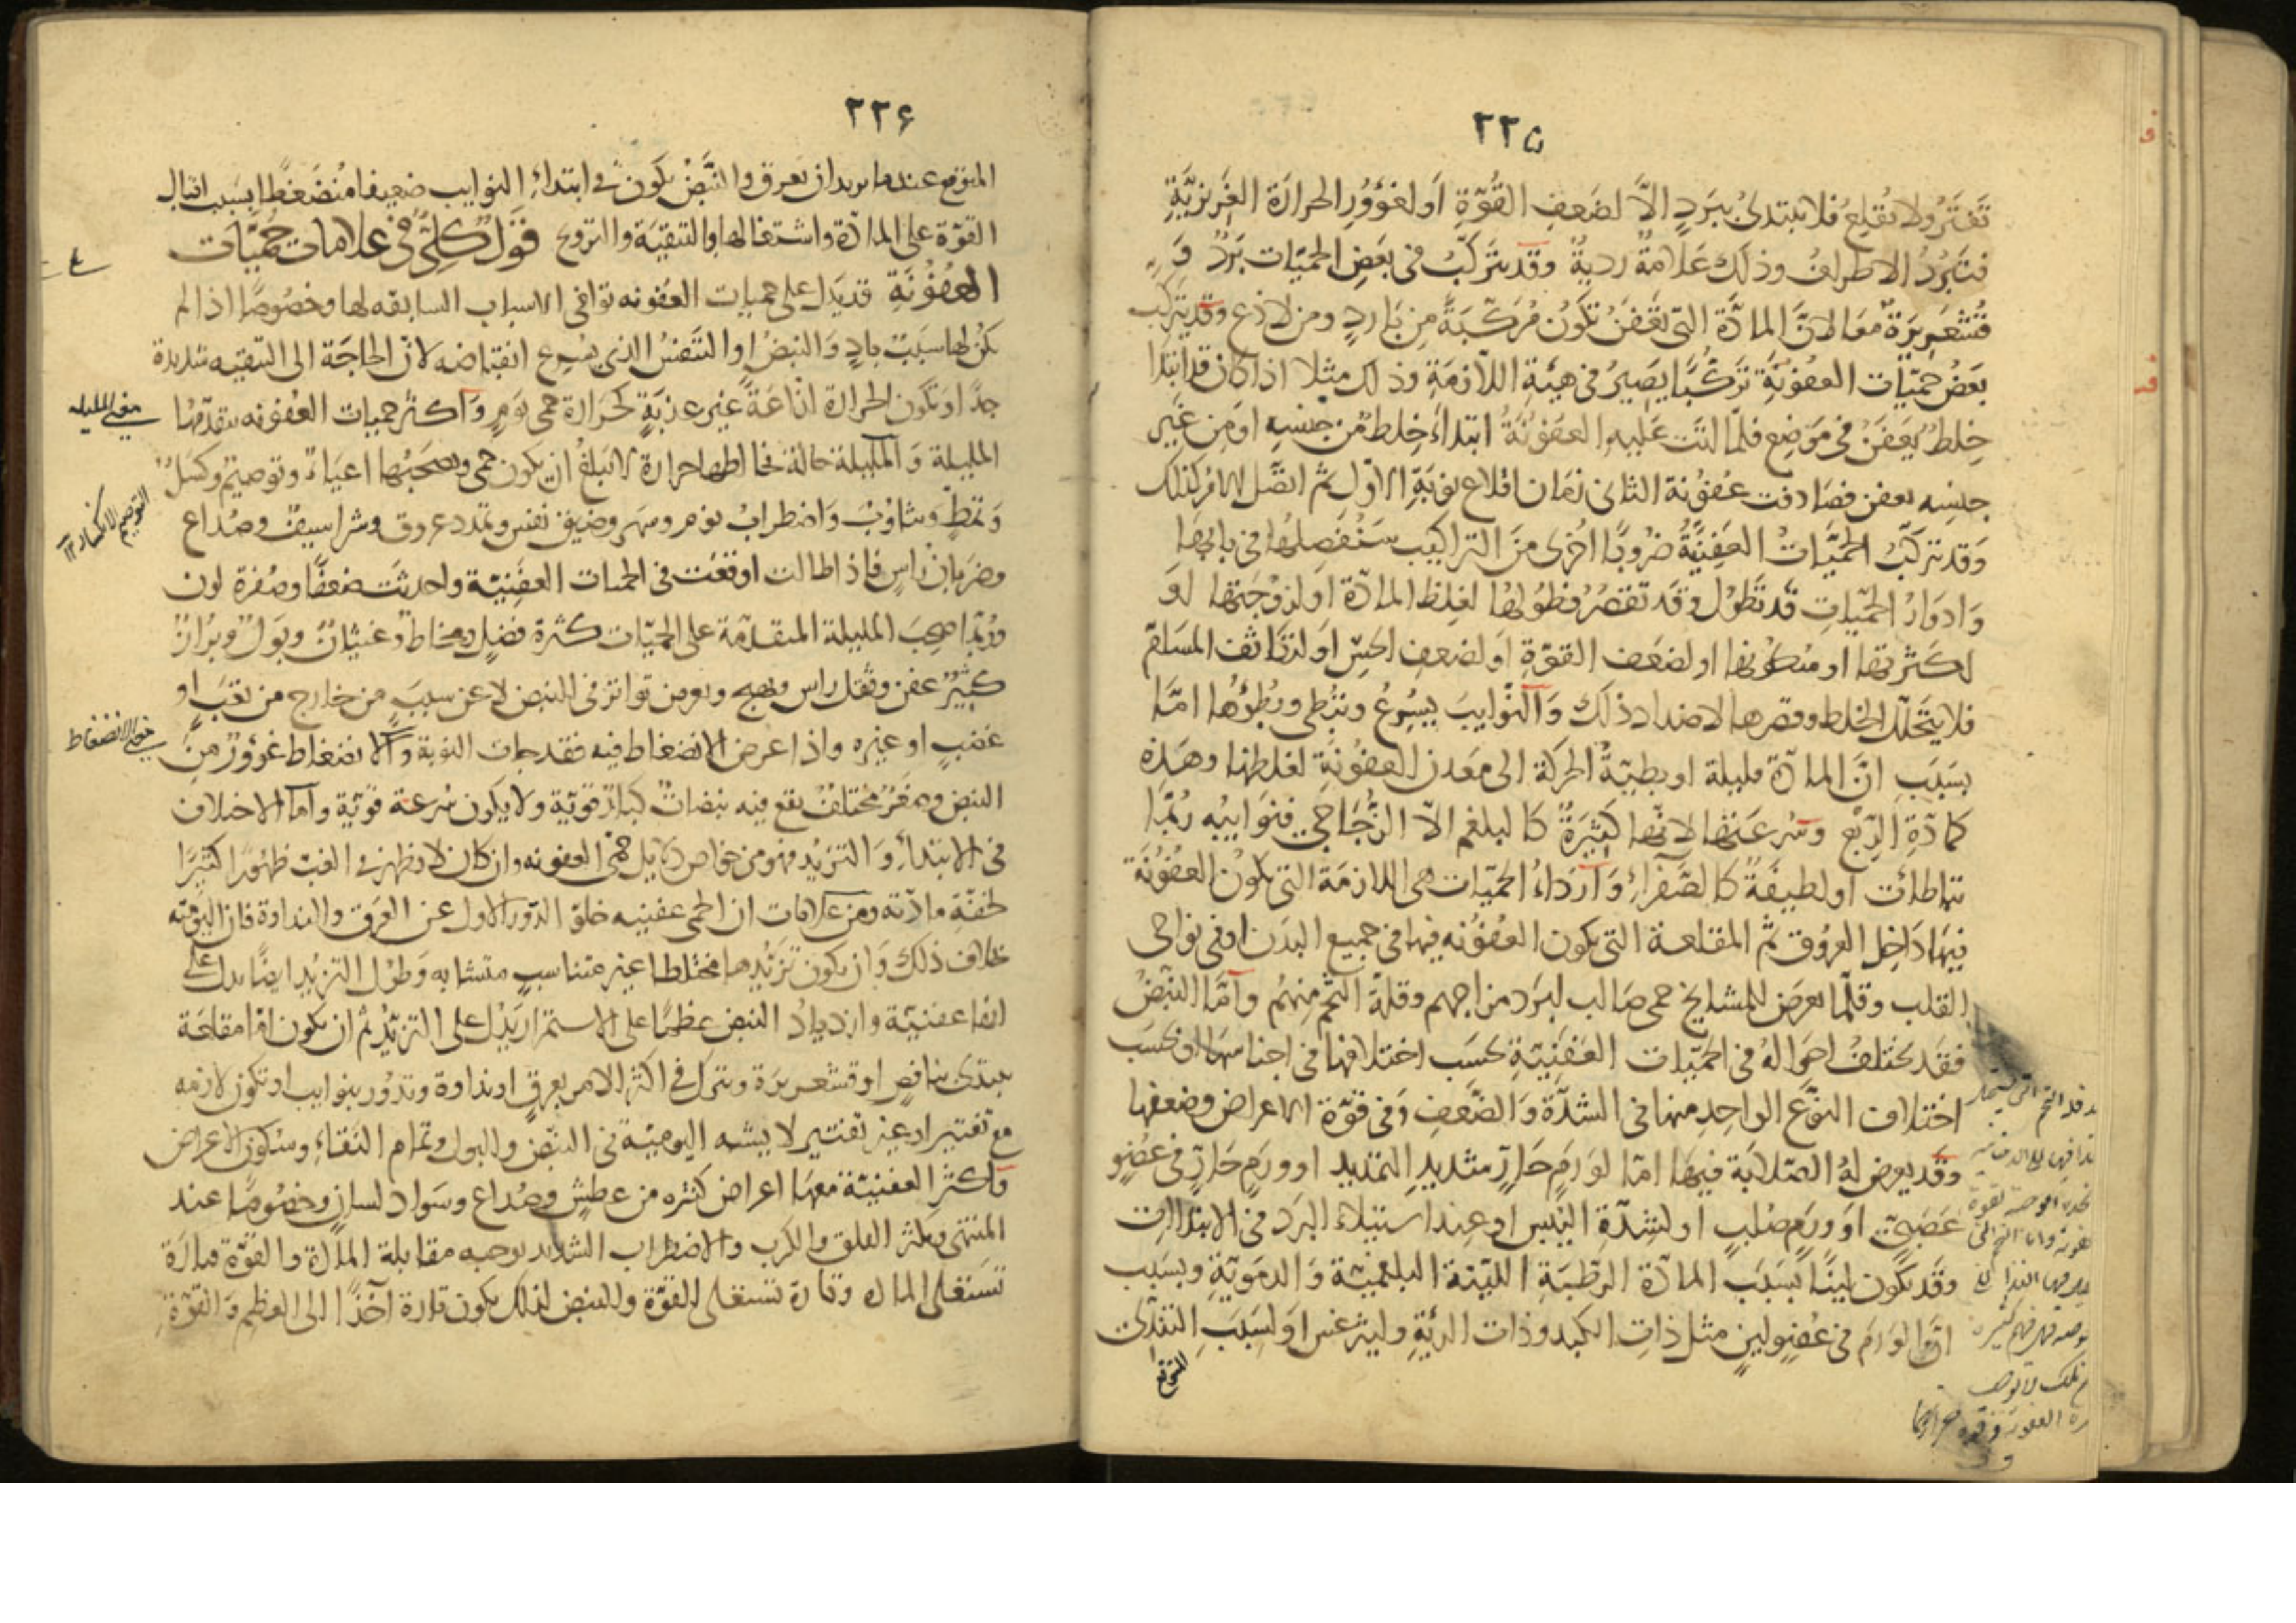 ٢٢٥
تَفتَرُ ولا تُقلِعُ فلا تبتدئُ ببَردٍ الاَّ لضَعفِ القُوّةِ اَو لغؤورِ الحرارَة الغَريزيَّةِ
فتَبرُدُ الاطرافُ وذلكَ عَلامةٌ رديةٌ وقد يتَركّبُ فى بَعضِ الحميّات بَردٌ وَ
قُشَعريرَةٌ معًا لانَّ المادَّة التى تعفنُ تكَونُ مُركّبَةً من بَاردٍ ومن لاذع وقد يتركب
بَعضُ حميّات العفونَةِ تَركّبًا يصيرُ فى هيئَةِ اللاّزمَةِ وذلك مثلا اذا كان قد ابتدا
خِلطٌ يَعفَنُ فى مَوضع فلمّا اتت عَليهِ العفُونَةُ ابتداءَ خِلطٌ من جنسِهِ اومن غَير
جنسِه يعفن فصَادفت عُفوُنة الثانى زمَان اقلاع نوبَةِ الاوّل ثم اتصَّل الامرُ كذلك
وَقد تتركّبُ الحميَّاتُ العَفِنيَّةُ ضُروبًا اُخرى منَ التراكيب سَنُفصِلهُا فى بابِهَا
وَادوَارُ الحميّاتِ قد تَطُولُ وقد تقصرُ فطُولهُا لغِلظ المادّة اولزوُجَتها اوَ
لكثرتها او سكونها اولضَعف القوّةِ اَو لضعفِ الحسِّ اَو لتكاثف المسَامّ
فلا يتحَلّل الخلط وقصرها لاضداد ذلك وَالنَّوايبُ يسُرعُ وتبُطى وبُطؤها امّا
بسَبَبِ انَّ المادّة قليلة او بطيئَةُ الحركة الى مَعدن العفوُنَةِ لغلظها وهَذه
كمادّةِ الرّبع وسُرعَتها لانّها كثيرَةٌ كالبلغم الاّ الزُّجَاجىّ فنوَايبُه رُبّما
تباطأت اولطيفَةٌ كالصَّفرآءِ وَاَردَاءُ الحميّات هى اللازمَة التى تكونُ العفُونَة
فيهَا دَاخل العرُوق ثم المقلعة التى يكون العفُونه فيها فى جميع البدَن اوفى نواحى
القلب وقلّما يعرضَ للمشايخ حمى صَالب لبَرد مزاجهم وقلةِ التّخم منهُم وَامَّا النبَّضُ
فقد يختلفُ احوَالهُ فى الحميّات العَفنِيّةِ بحَسَب اختلافها فى اجناسها اوبحسَب
اختلاف النوَّع الواحدِ منها فى الشدَّة وَالضَّعفِ وَفى قوّة الاعراض وضعفها
وقد يعرض لهُ الصّلابَة فيها امّا لوَرَمٍ حَارٍّ شديدِ التمديدِ اوورَمٍ حَارٍّ فى عُضوٍ
عَصَبىّ اوَ ورَمٍ صُلبٍ اولشِدّةِ اليُبس اوعِند استيلاء البرَد فى الابتدَاات
وقَد تكون ليّنًا بسَبَب المادّة الرّطبَةِ اللينة البلغميّة وَالدمَويّةِ وبسَبب
انّ الوَرَم فى عُضوٍ لينٍ مثل ذاتِ الكبد وذات الرئَةِ وليثرغس اَو لسَببِ التندّى
المتوقع
٢٢۶
المتوقع عندما يريد ان يعرق والنَّبضُ يكون فى ابتداءِ النوايب ضعيفا منُضَغطًا بسَبب اقبال
القوّة على المادّة واشتغالها بالتنقيَة والتروح قَولٌ كلىٌّ فى علامات حُميَّات
العفُوُنَةِ قد يَدّل على حميات العفونه توافى الاسباب السابقه لها وخصُوصًا اذا لم
يكن لها سبَبٌ بادٍ وَالنبضُ او التَنفسُ الذى يُسرع انقبَاضه لان الحاجَة الى التنقيه شديدة
جدًّا او تكون الحرارة لذّاعَةً غيرعذبَةٍ كحَرارة حمى يوَمٍ وَاكثرُ حميات العفونه يتقدّمها
معنى المليله
المليلة وَالمليلة حالة تخالطها حرارة لا تبلغُ ان يكون حمى وتصحَبُها اعيَاءٌ وتوصيمٌ وكسَلٌ
التوصيم الانكسار ١٢
وَتمطٍّ وتثاوُبٌ وَاضطرابُ نومٍ وسهر وضيقُ نفس وتمدد عروق وشراسيفَ وصُداع
وضربَان رَاسٍ فاذا طالت اوقعَت فى الحميات العفَنيّة واحدثت ضعفًا وصُفرة لون
ورُبّما صحِبَ المليلة المتقدّمة على الحميّات كثرة فضلٍ ومخاطٌ وغثيانٌ وبَولٌ وبرازٌ
كثيرٌ عفن وثقل راس وتهيج ويعرض تواتر فى النبض لاعن سببٍ من خارج من تعَبَ اوَ
غضبٍ اوغيره واذا عرض الانضغاط فيه فقد جاءت النوبة وَالانضغاط غؤورٌ منَ
معنى الانضغاط
النبض وصِغَرٌ مختلفٌ يقع فيه نبضاتٌ كبارٌ قويّة ولا يكون سُرعة قويّة وامّا الاختلاف
فى الابتداءِ وَالتزيّد فهو من خواص دلايل حمى العفونه وان كان لا يظهر فى الغبّ ظهورًا كثيرًا
لخفّةِ مادّته ومن علامات ان الحمى عفنيه خلوّ الدّور الاول عن العرَق والنداوة فان اليوميّه
بخلاف ذلك وَان يكون تزيّدها مختلطا غير متناسبٍ متشابه وَطول التزيّد ايضًا يدل على
انها عفنيّة وازديادُ النبض عظمًا على الاستمرار يَدُل على التزيّدُ ثم ان يكون امّا مقلعَة
يبتدئ بنافضٍ اوقشعريرَة ويترك فى اكثر الامر بعرقٍ اونداوة وتدُور بنوايب اوتكون لازمه
مع تفتير اوغير تفتيرٍ لا يشبه اليوميّة فى النبض والبول وتمام النّقاءِ وسُكون الاعراض
وَاكثر العفنيّة معها اعراض كثيره من عطشٍ وصُداع وسَواد لسان وخصُوصًا عند
المنتهى ويكثر القلق والكرب والاضطراب الشديد يوجبه مقابلة المادّة والقوّة فتارَة
تستعلى المادة وتارة تستعلى القوّة وللنبض لذلك يكون تارة آخذًا الى العظم وَالقوّة